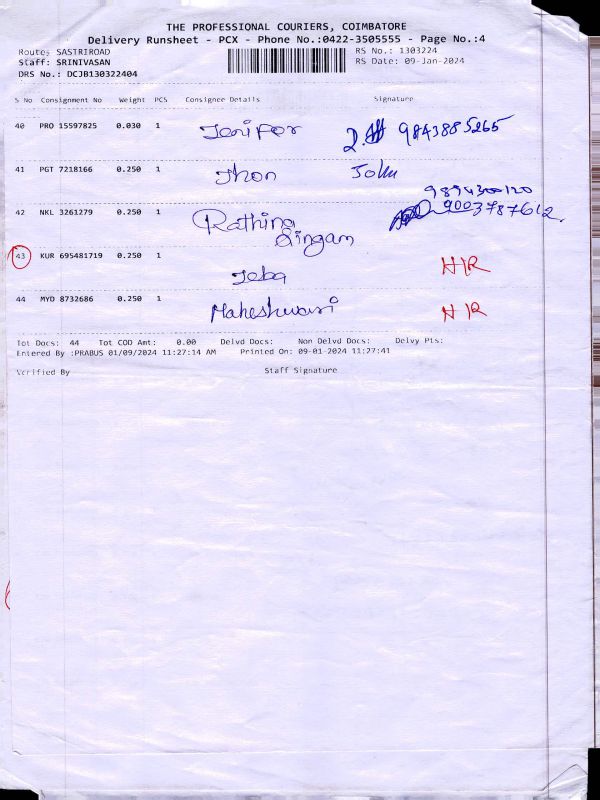 THE PROFESSIONAL COURIERS, COIMBATORE
Delivery Runsheet - PCX - Phone No.:0422-3505555 - Page No.:4
Route: SASTRIROAD RS No.: 1303224
Staff: SRINIVASAN RS Date: 09-Jan-2024
DRS No.: DCJB130322404
S No Consignment No Weight PCS Consignee Details Signature
40 PRO 15597825 0.030 1 Jenifor 9843885265
41 PGT 7218166 0.250 1 Jhon John
9894300120
42 NKL 3261279 0.250 1 Rathina 9003787612.
Singam
43 KUR 695481719 0.250 1
Jeba H/R
44 MYD 8732686 0.250 1 Maheshwari H R
Tot Docs: 44 Tot COD Amt: 0.00 Delvd Docs: Non Delvd Docs: Delvy Pts:
Entered By :PRABUS 01/09/2024 11:27:14 AM Printed On: 09-01-2024 11:27:41
Verified By Staff Signature